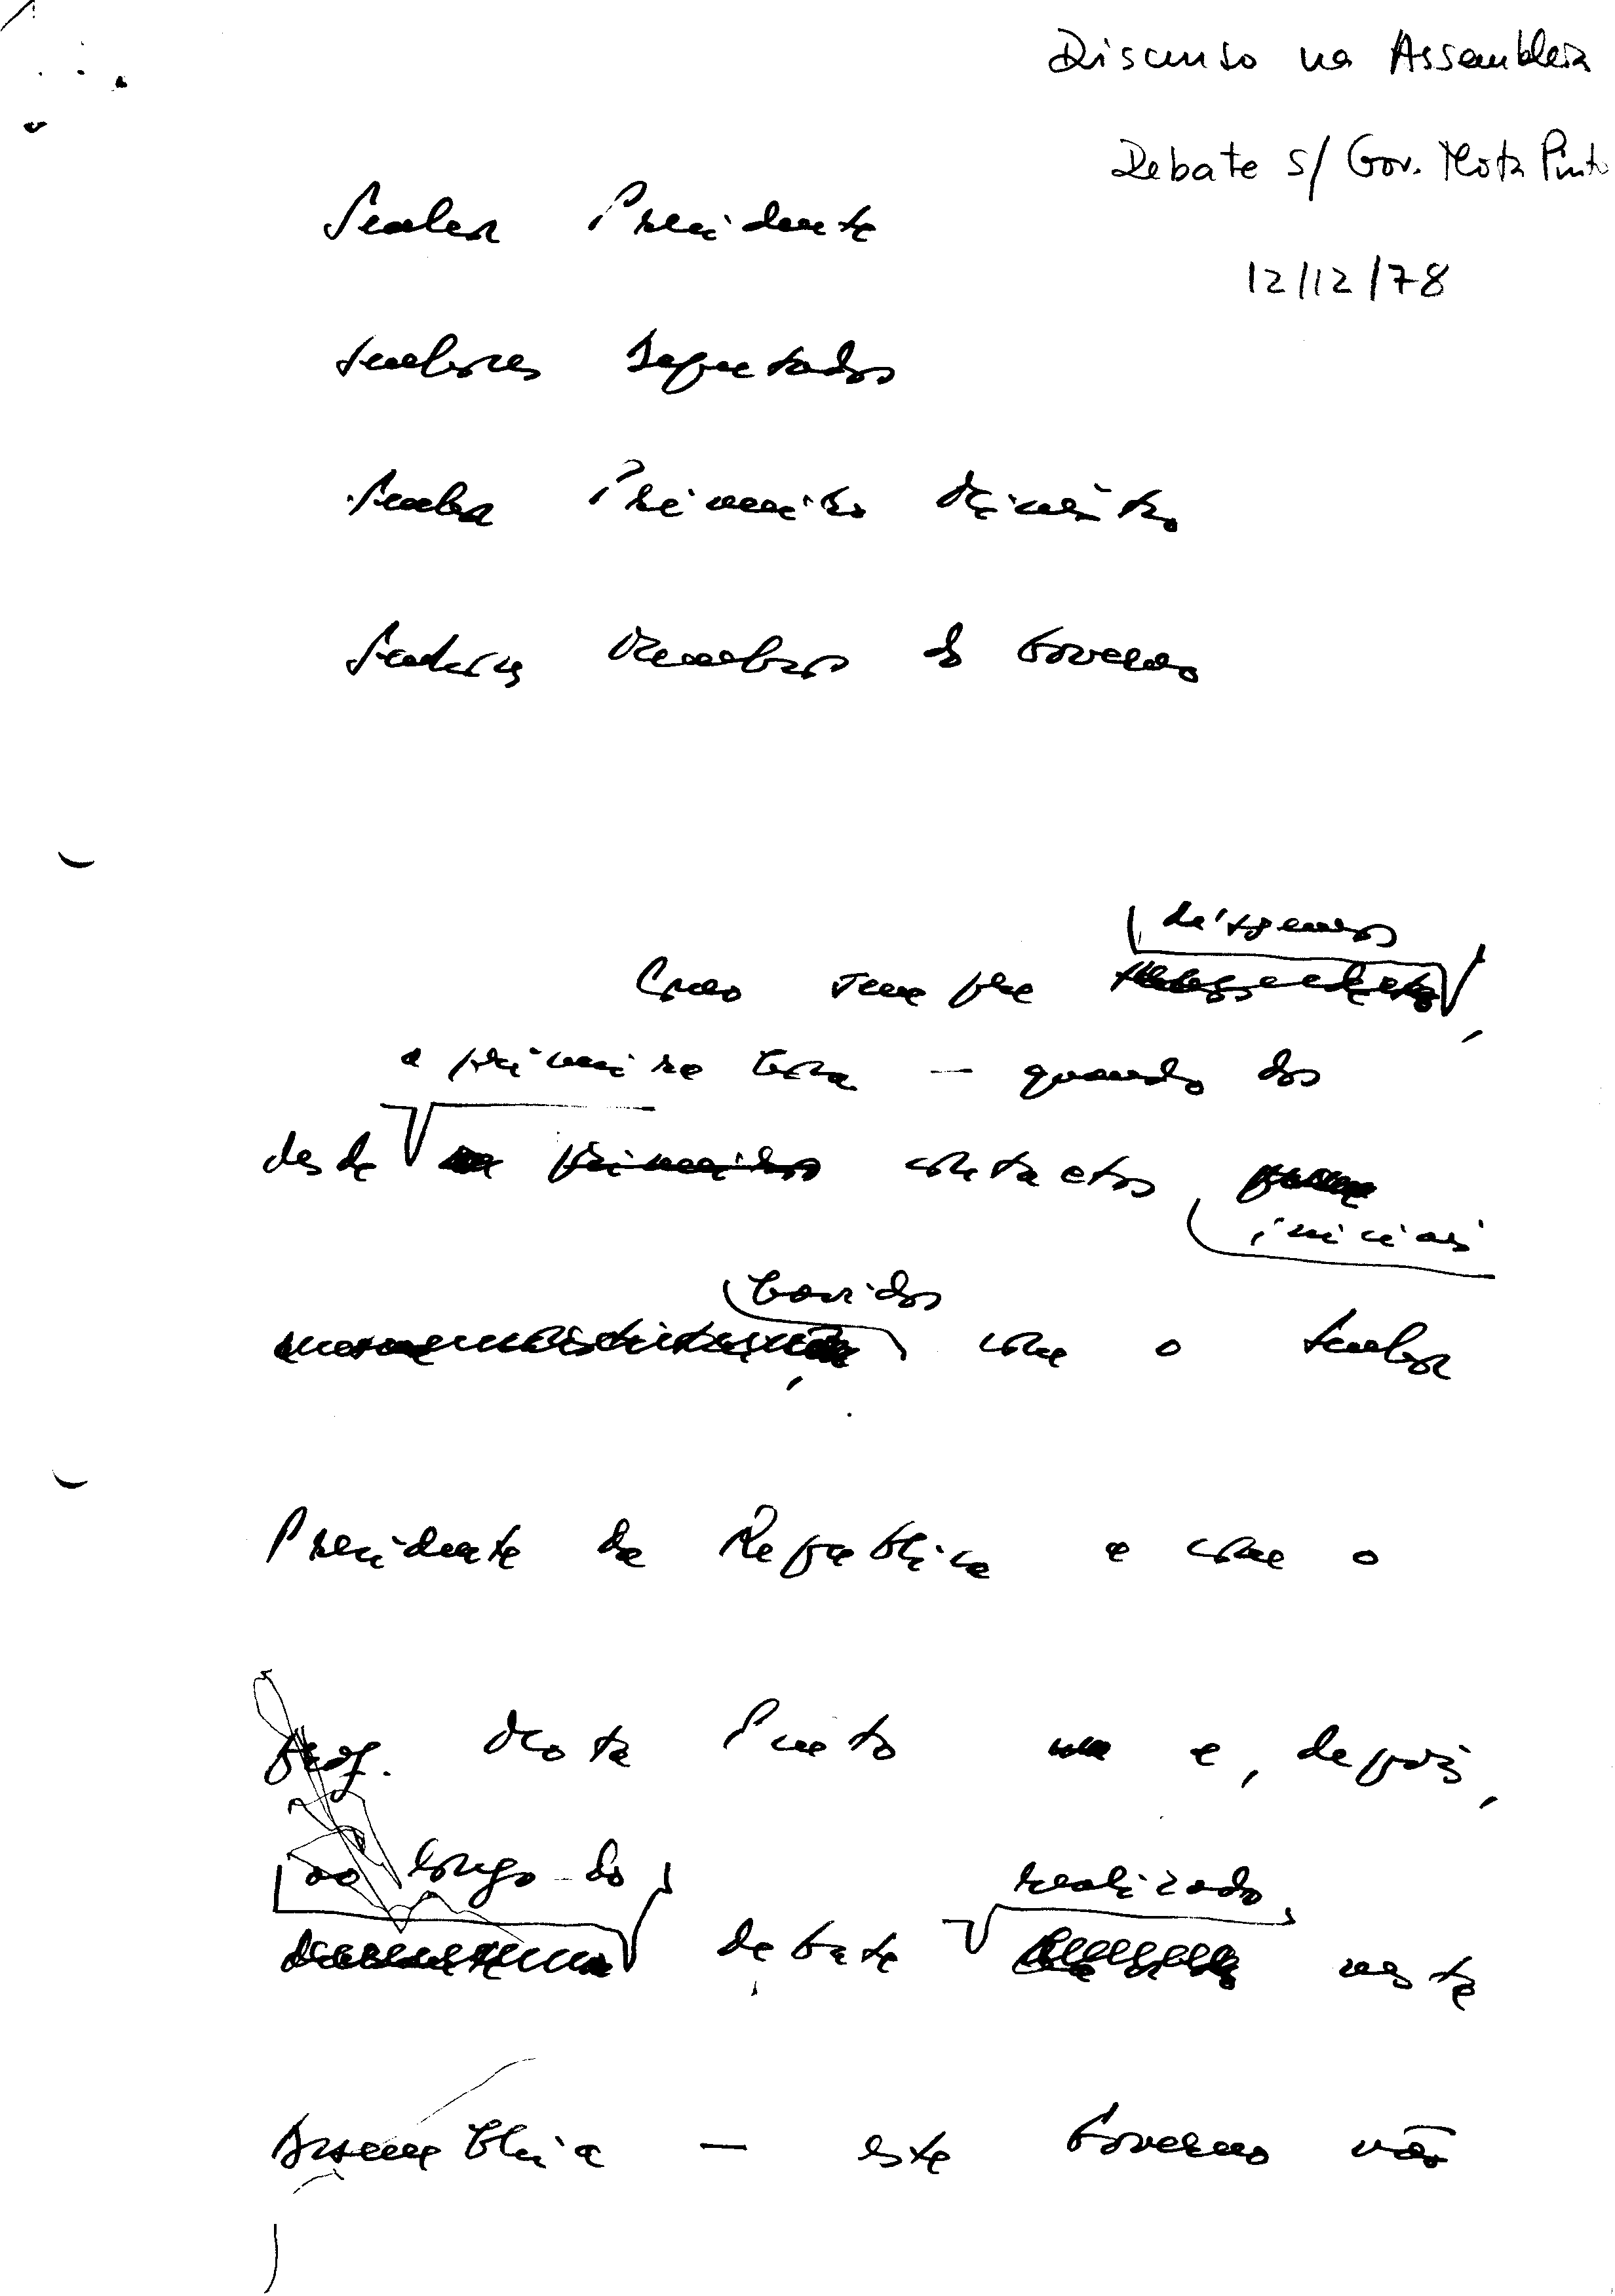 Discurso na Assembleia
Debate s/ Gov. Mota Pinto
12/12/78
Senhor Presidente
Senhores Deputados
Senhor Primeiro Ministro
Senhores Membros do Governo
dissemos
Como sempre
,
a primeira hora — quando dos
desde primeiros contactos
iniciais
havidos
, com o Senhor
Presidente da República e com o
Prof. Mota Pinto e, depois,
ao longo do realizado
debate nesta
Assembleia — este Governo não